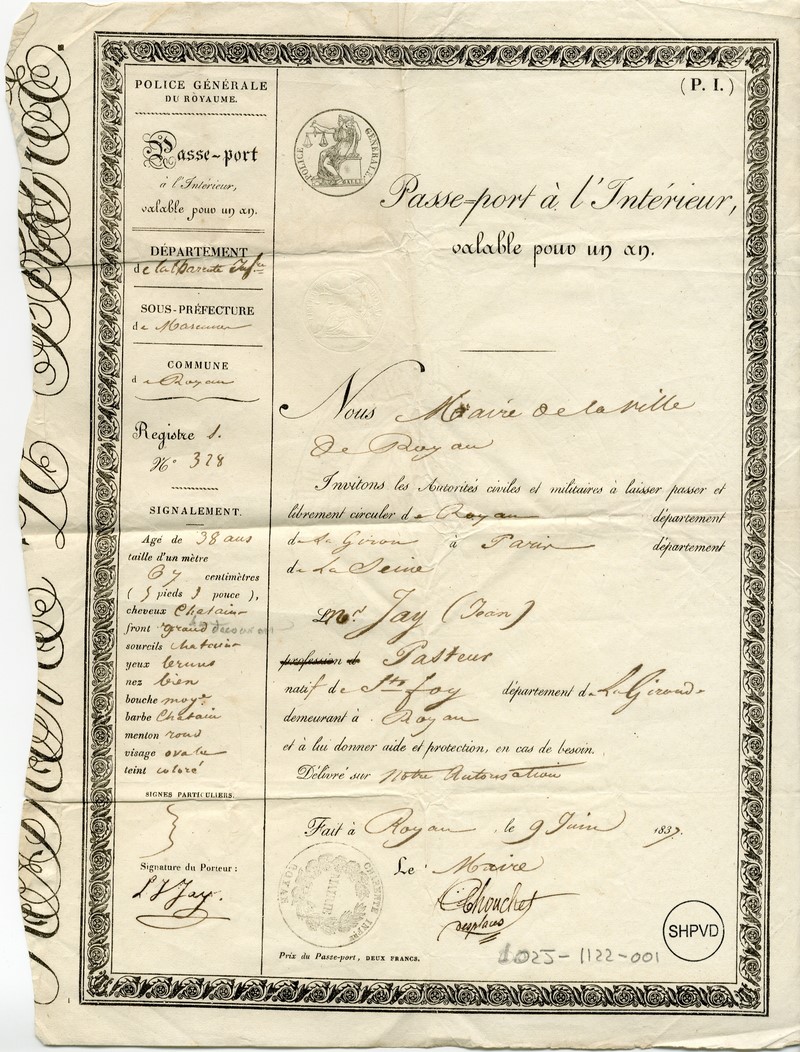 POLICE GÉNÉRALE
DU ROYAUME.
Passe-port
à l'Intérieur,
valable pour un an.
DÉPARTEMENT
de la Charente Infre
SOUS-PRÉFECTURE
de Marennes
COMMUNE
de Royan
Registre 1.
No 328
SIGNALEMENT.
Agé de 38 ans
taille d'un mètre
67 centimètres
( 5 pieds pouce ),
cheveux Chatain
front grand
sourcils chatain
yeux bruns
nez bien
bouche moye
barbe Chatain
menton rond
visage ovale
teint coloré
SIGNES PARTICULIERS.
Signature du Porteur :
Jay.
(P. I.)
POLICE GÉNÉRALE
Passe-port à l'Intérieur,
valable pour un an.
Nous Maire de la ville
de Royan
Invitons les Autorités civiles et militaires à laisser passer et
librement circuler de Royan département
de la Giron à Paris département
de La Seine
Mr Jay (Jean)
profession de Pasteur
natif de Ste foy département de La Gironde
demeurant à Royan
et à lui donner aide et protection, en cas de besoin.
Délivré sur notre Autorisation
Fait à Royan, le 9 Juin 1837.
Le Maire
MAIRIE
ROYAN
CHARENTE INFRE
Prix du Passe-port, DEUX FRANCS.
SHPVD
1025-1122-001